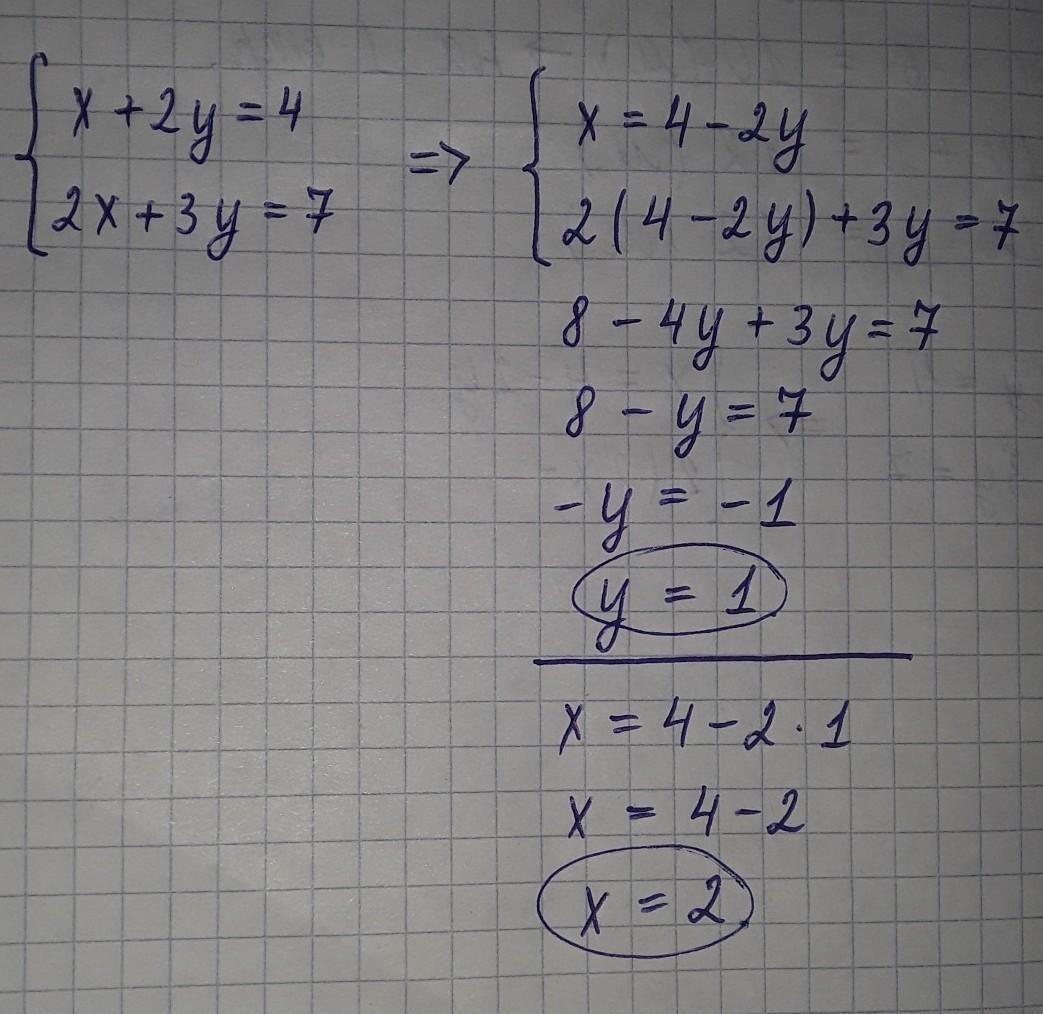 x + 2y = 4
2x + 3y = 7
=>
x = 4 - 2y
2(4 - 2y) + 3y = 7
8 - 4y + 3y = 7
8 - y = 7
-y = -1
y = 1
x = 4 - 2 · 1
x = 4 - 2
x = 2